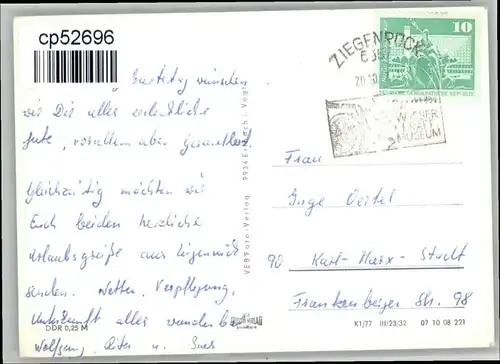 cp52696
Geburtstag wünschen
wir Dir alles erdenkliche
Gute, vor allem aber Gesundheit.
Gleichzeitig möchten wir
Euch beiden herzliche
Urlaubsgrüße aus Ziegenrück
senden. Wetter, Verpflegung,
Unterkunft alles wunderbar
Wolfgang, und Ines
DDR 0,25 M
VEB Foto-Verlag 9934 Erlbach i. Vogtl.
ZIEGENRÜCK
10
DEMOKRATISCHE REPUBLIK
MUSEUM
Frau
Inge Oertel
90 Karl-Marx-Stadt
Frankenberger Str. 98
K1/77 III/23/32 07 10 08 221